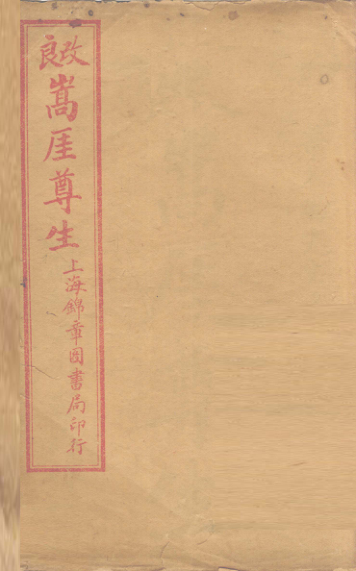 改良
嵩厓尊生
上海錦章圖書局印行